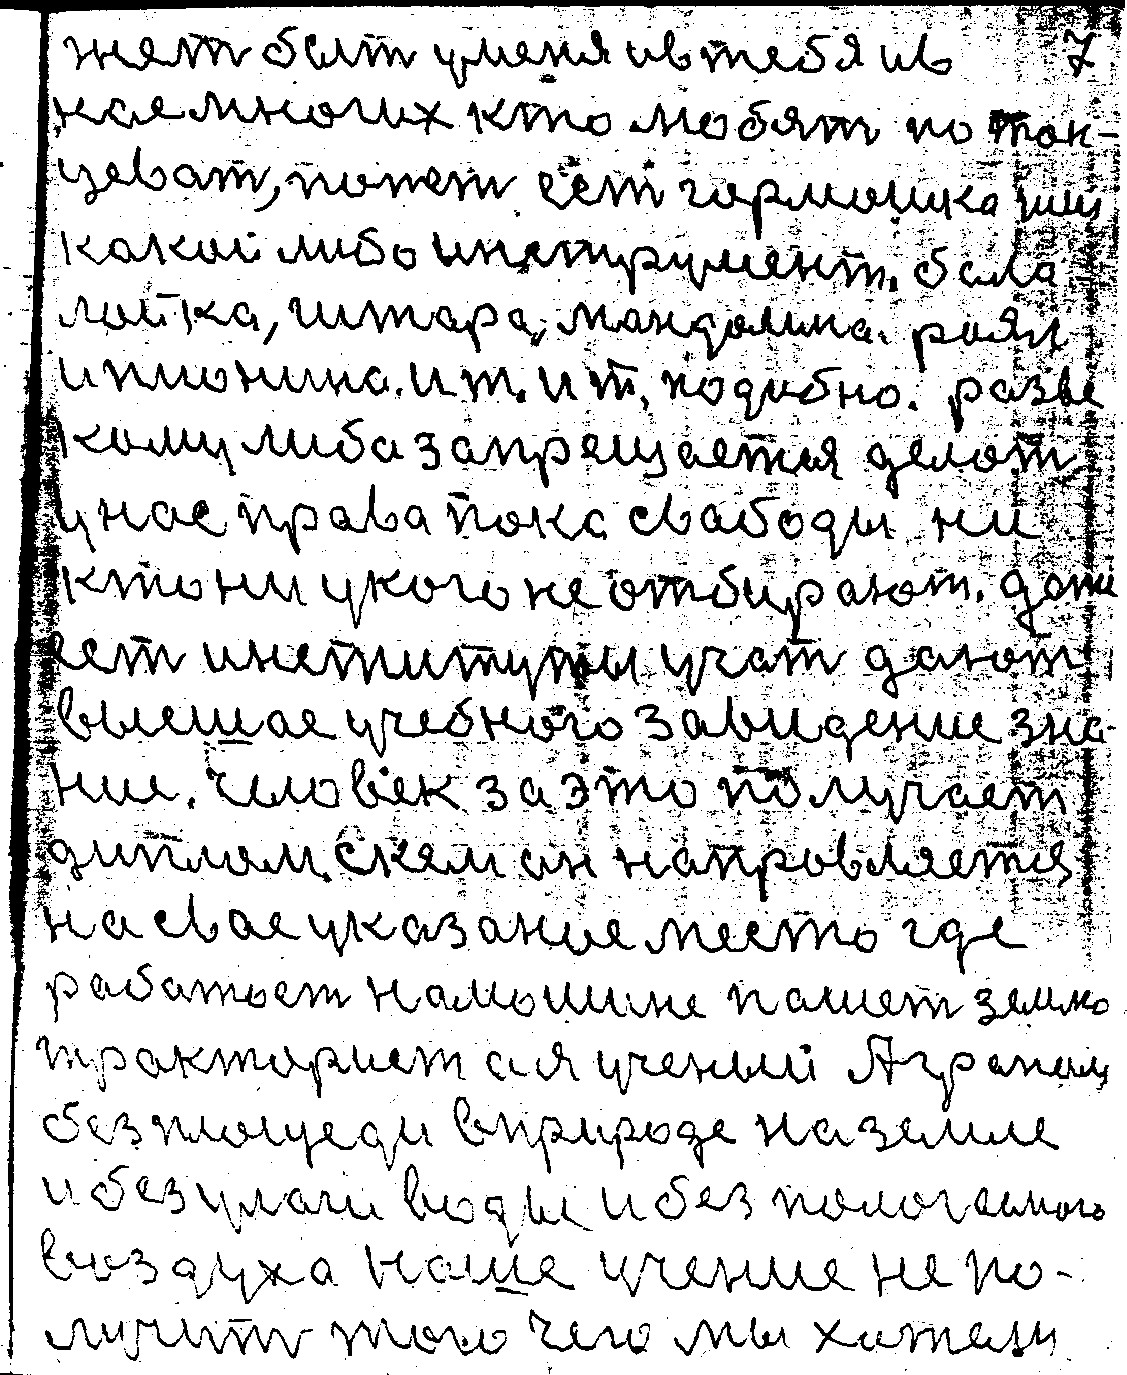 жет быт уменя ивтебя ив 7
насмногих кто любят по тан-
цеват, попет ест гармошка или
какой либо инструмент. бала
лайка, гитара, мандолина. роял
ипионина. и т. и т. подобно. разве
кому либа запрещается делат
унас права пока свабоды ни
кто ни укого не отбирают. даже
ест институты учат дают
высшае учебного завидение зна-
ние. человек за это получает
диплом. Скем он направляется
на свае указание место где
работает намошине пашет землю
тракторист ая ученый Аграном
без площеди вприроде наземле
ибез улаги воды и без пологаемого
воздуха наше учение не по-
лучит того чего мы хатели